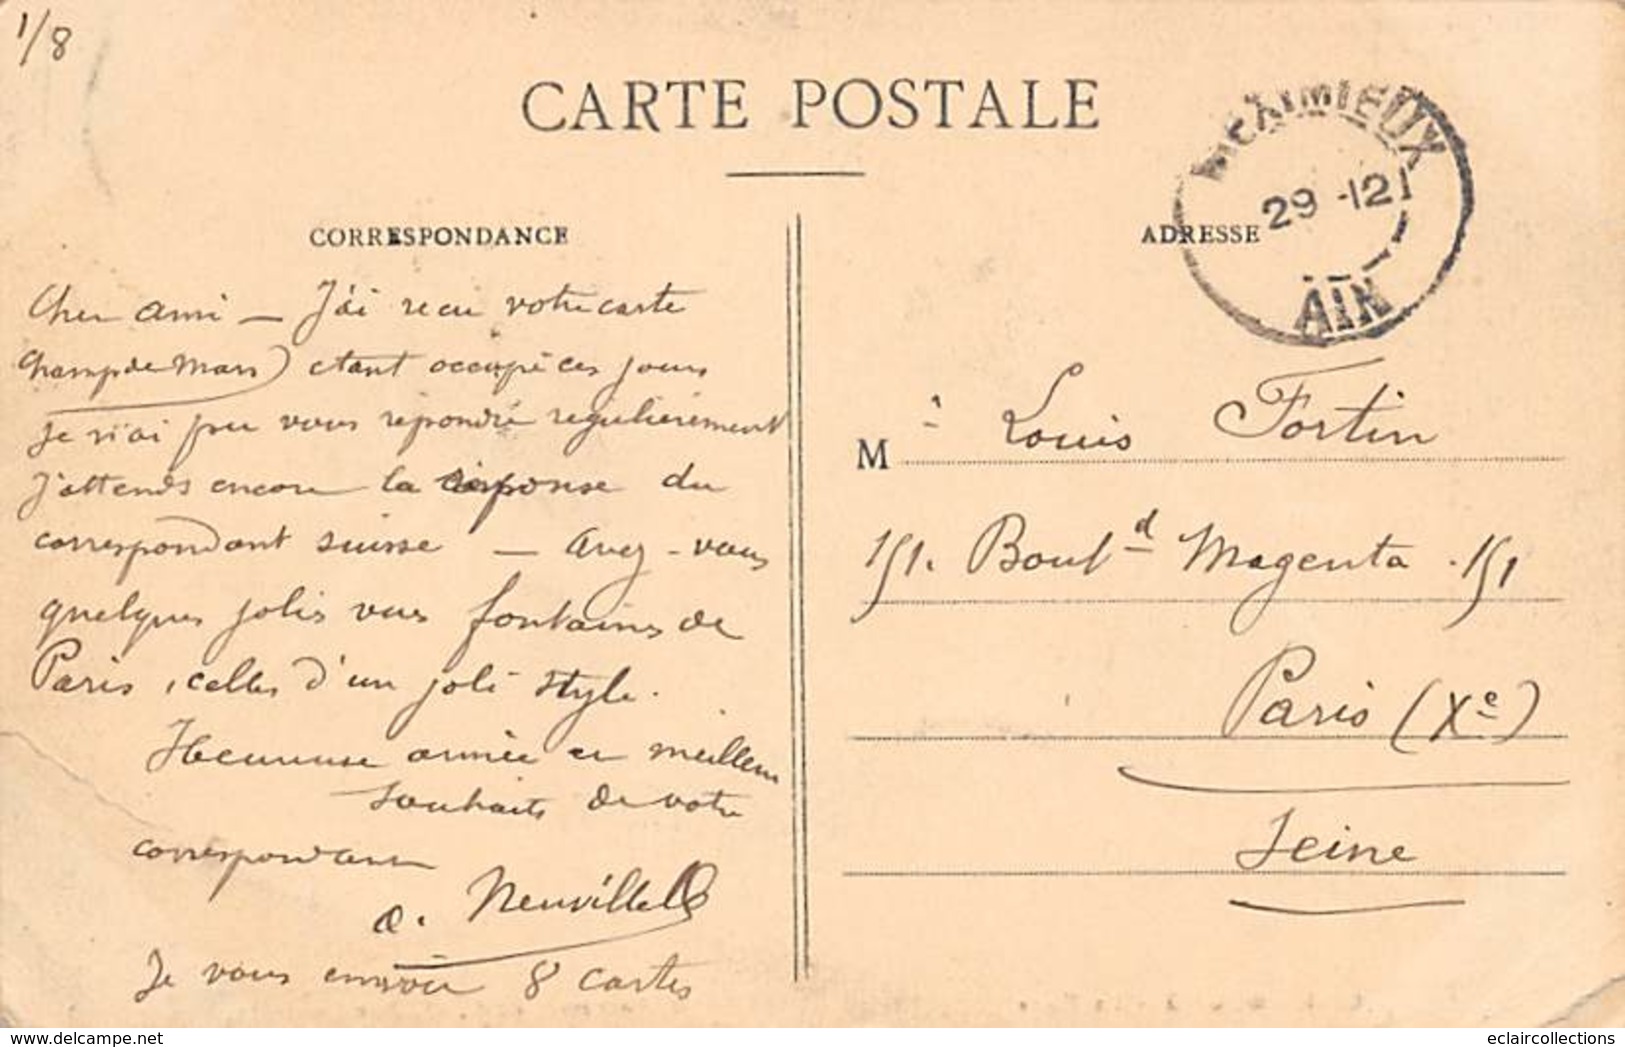 1/8
CARTE POSTALE
CORRESPONDANCE
ADRESSE
MEXIMIEUX
29 -12 1
AIN
Cher ami — J'ai recu votre carte
Champ de Mars) etant occupé ces jours
je n'ai pu vous répondre regulierement
J'attends encore la réponse du
correspondant suisse — Avez-vous
quelques jolis vues fontaines de
Paris, celles d'un joli style.
Heureuse année et meilleurs
souhaits de votre
correspondant
a. Neuville
Je vous envoie 8 cartes
M à Louis Fortin
151. Boul^d Magenta. 151
Paris (Xe)
Seine
eclaircollections